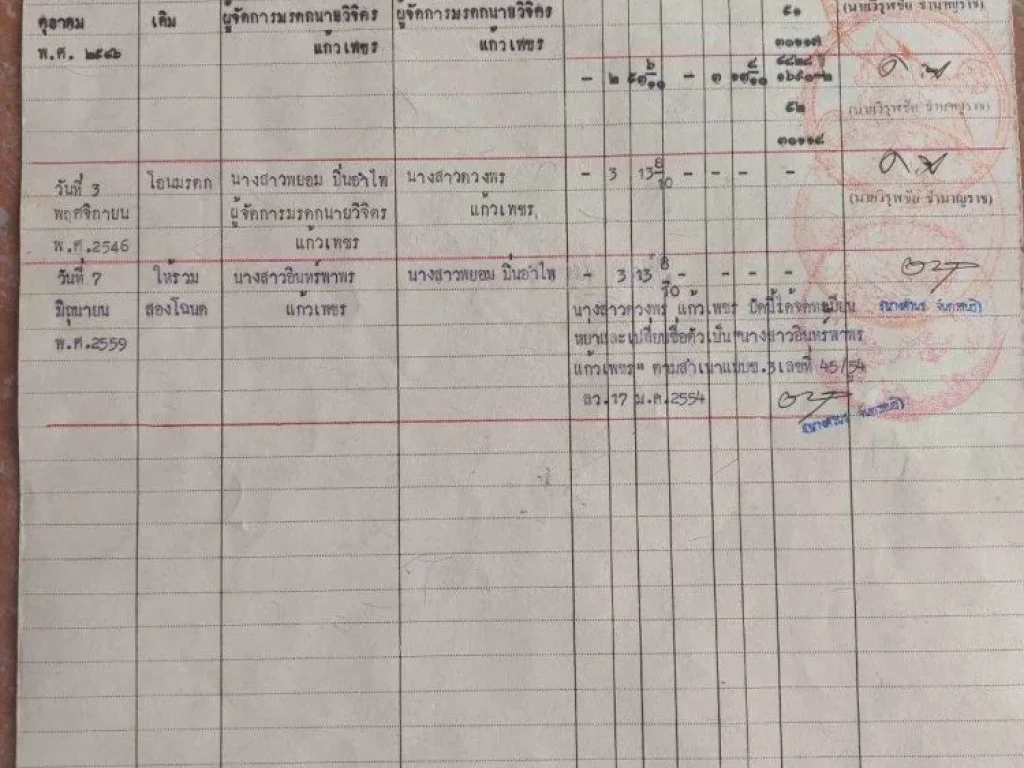 ตุลาคม เดิม ผู้จัดการมรดกนายวิจิตร ผู้จัดการมรดกนายวิจิตร ๕๑ (นายวิรุฬชัย ชำนาญราช)
พ.ศ. ๒๕๔๖ แก้วเพชร แก้วเพชร ๓๐๑๑๗
- ๒ - ๓
๕๒ (นายวิรุฬชัย ชำนาญราช)
๓๐๑๑๘
วันที่ 3 โอนมรดก นางสาวพยอม ปิ่นอำไพ นางสาวดวงพร - 3 13 8/10 - - - -
พฤศจิกายน ผู้จัดการมรดกนายวิจิตร แก้วเพชร (นายวิรุฬชัย ชำนาญราช)
พ.ศ.2546 แก้วเพชร
วันที่ 7 ให้รวม นางสาวอินทร์พาพร นางสาวพยอม ปิ่นอำไพ - 3 13 8/10 - - - -
มิถุนายน สองโฉนด แก้วเพชร นางสาวดวงพร แก้วเพชร บัดนี้ได้จดทะเบียน
พ.ศ.2559 หย่าและเปลี่ยนชื่อตัวเป็น "นางสาวอินทร์พาพร
แก้วเพชร" ตามสำเนาแบบช.3 เลขที่ 45/54
ลว.17 ม.ค.2554